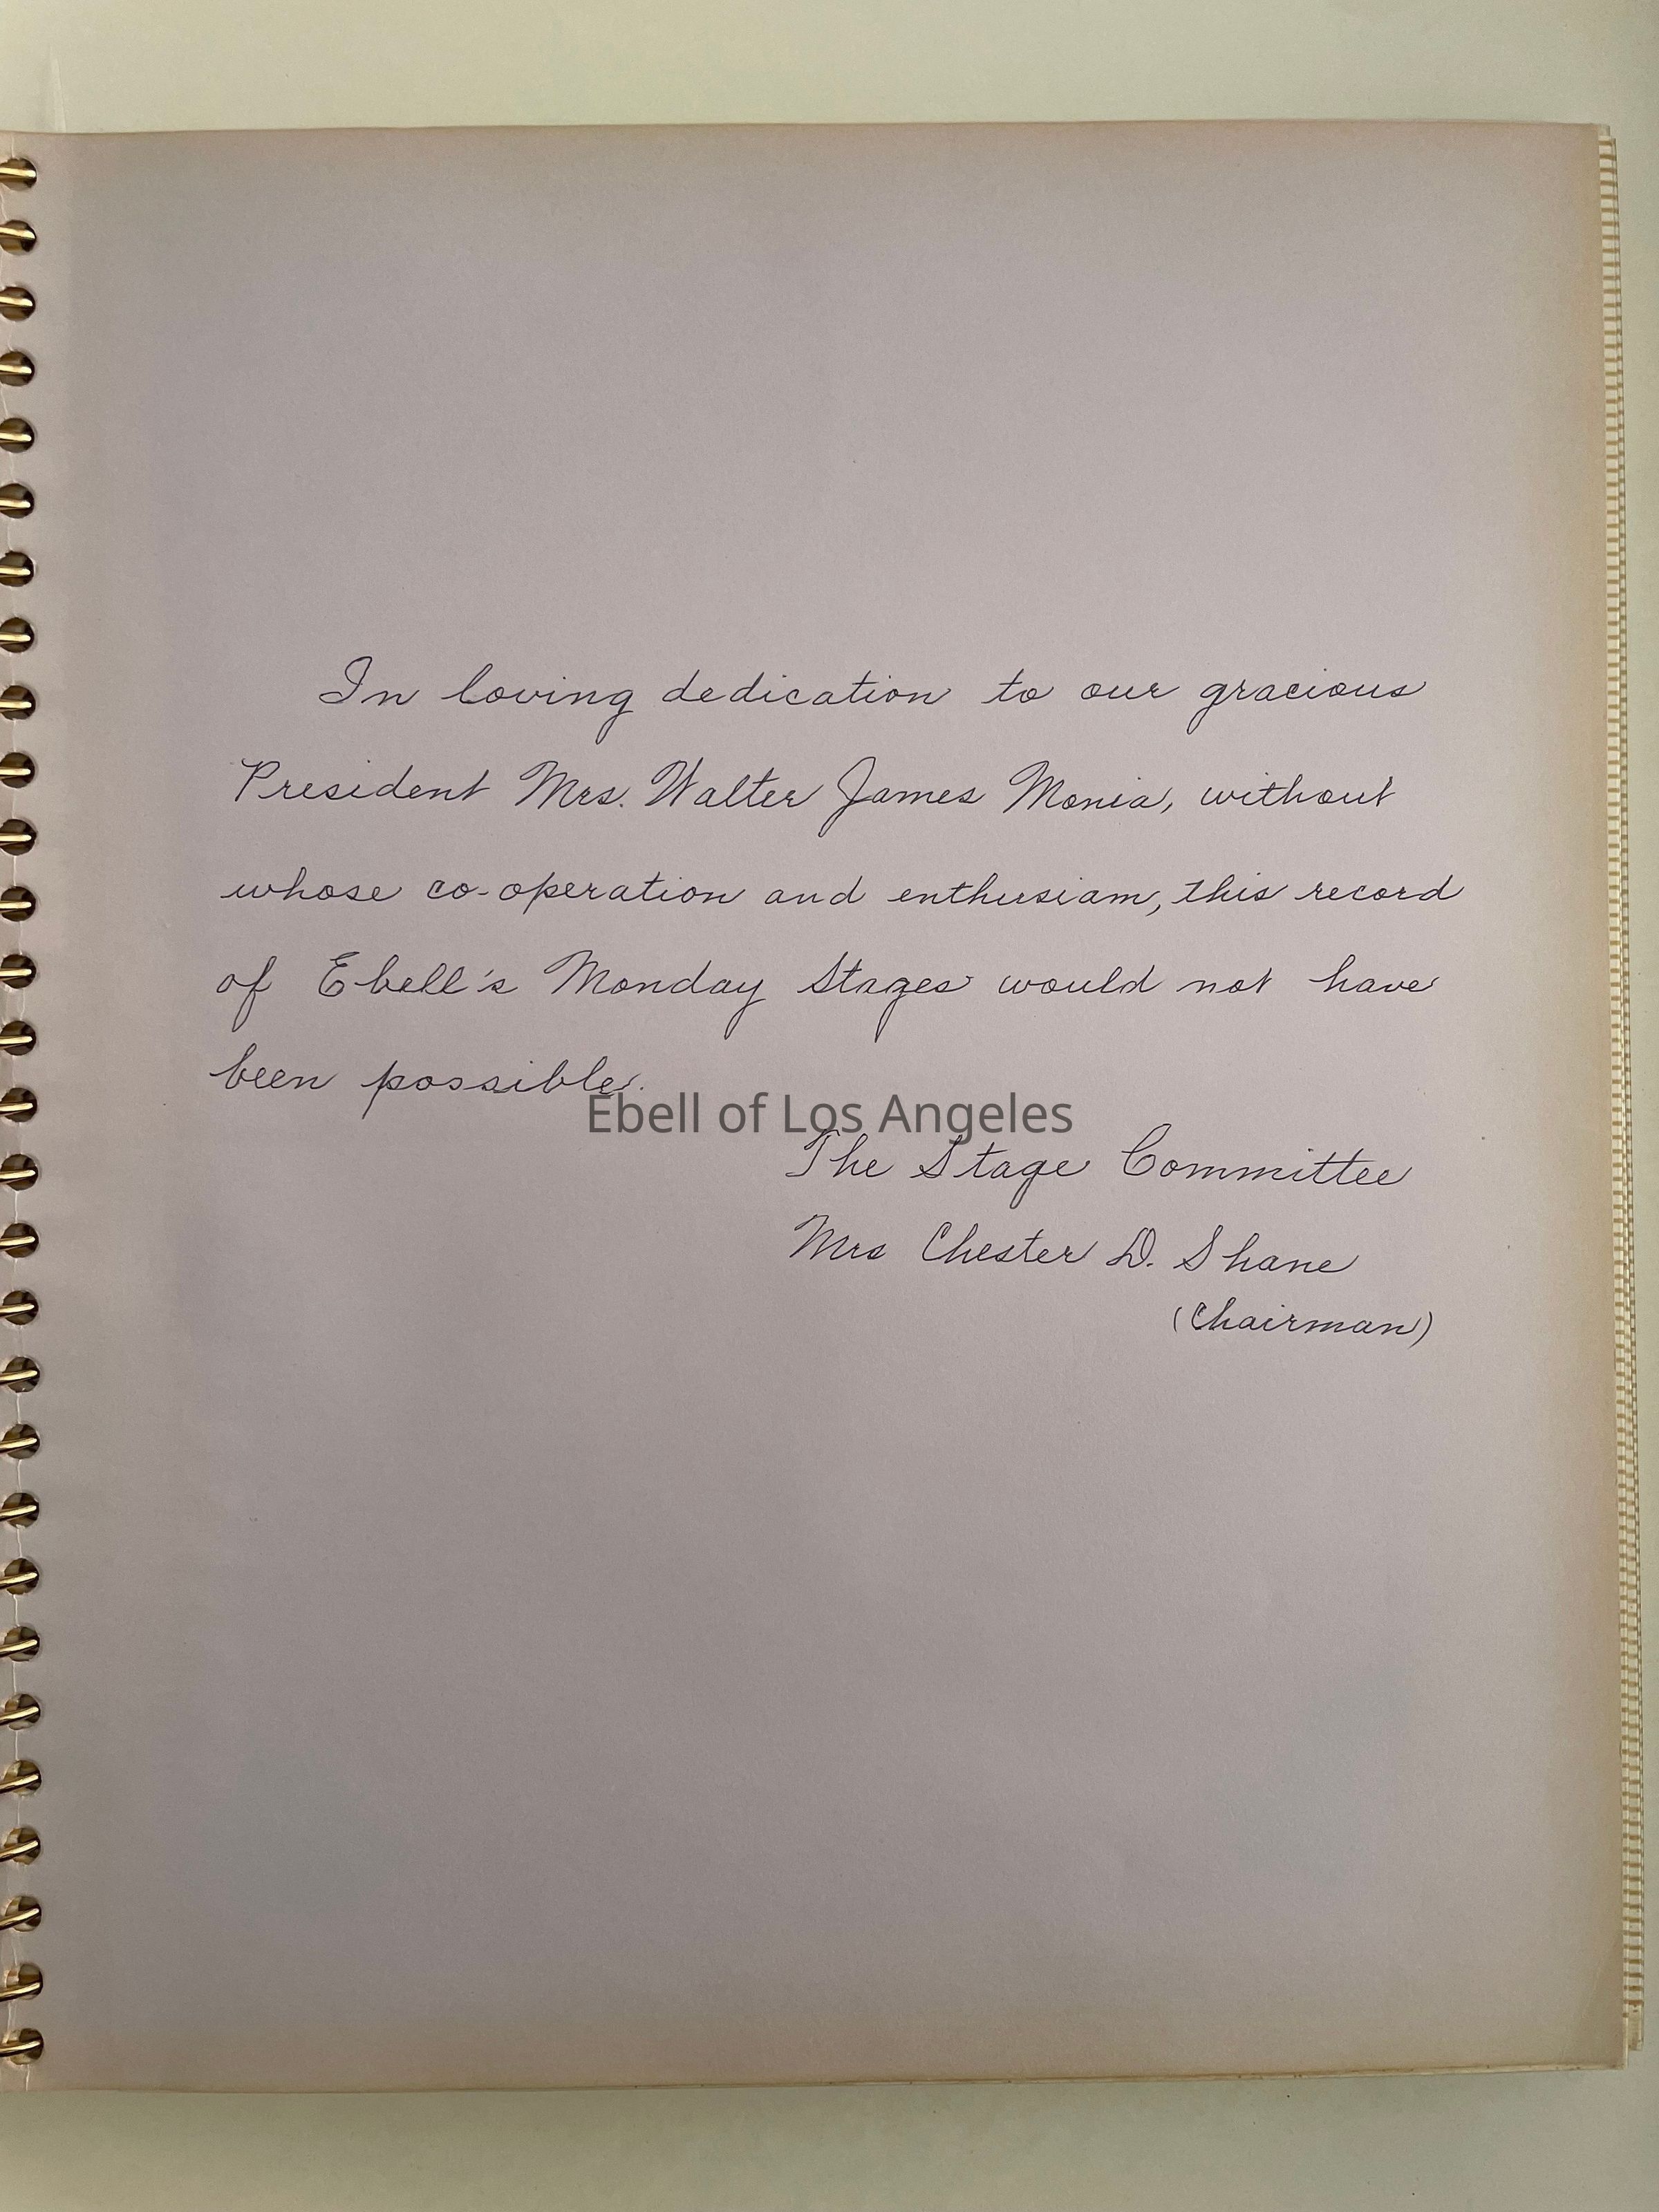 In loving dedication to our gracious
President Mrs. Walter James Monia, without
whose co-operation and enthusiam, this record
of Ebell's Monday Stages would not have
been possible.
Ebell of Los Angeles
The Stage Committee
Mrs Chester D. Shane
(Chairman)